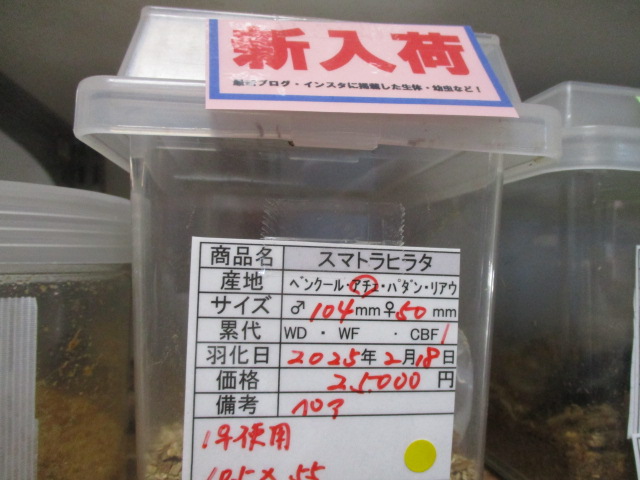 新入荷
最新ブログ・インスタに掲載した生体・幼虫など！
商品名 スマトラヒラタ
産地 ベンクール・アチェ・パダン・リアウ
サイズ ♂104mm♀50mm
累代 WD・WF ・CBF1
羽化日 2025年2月18日
価格 25000円
備考 ペア
1年使用
105×55